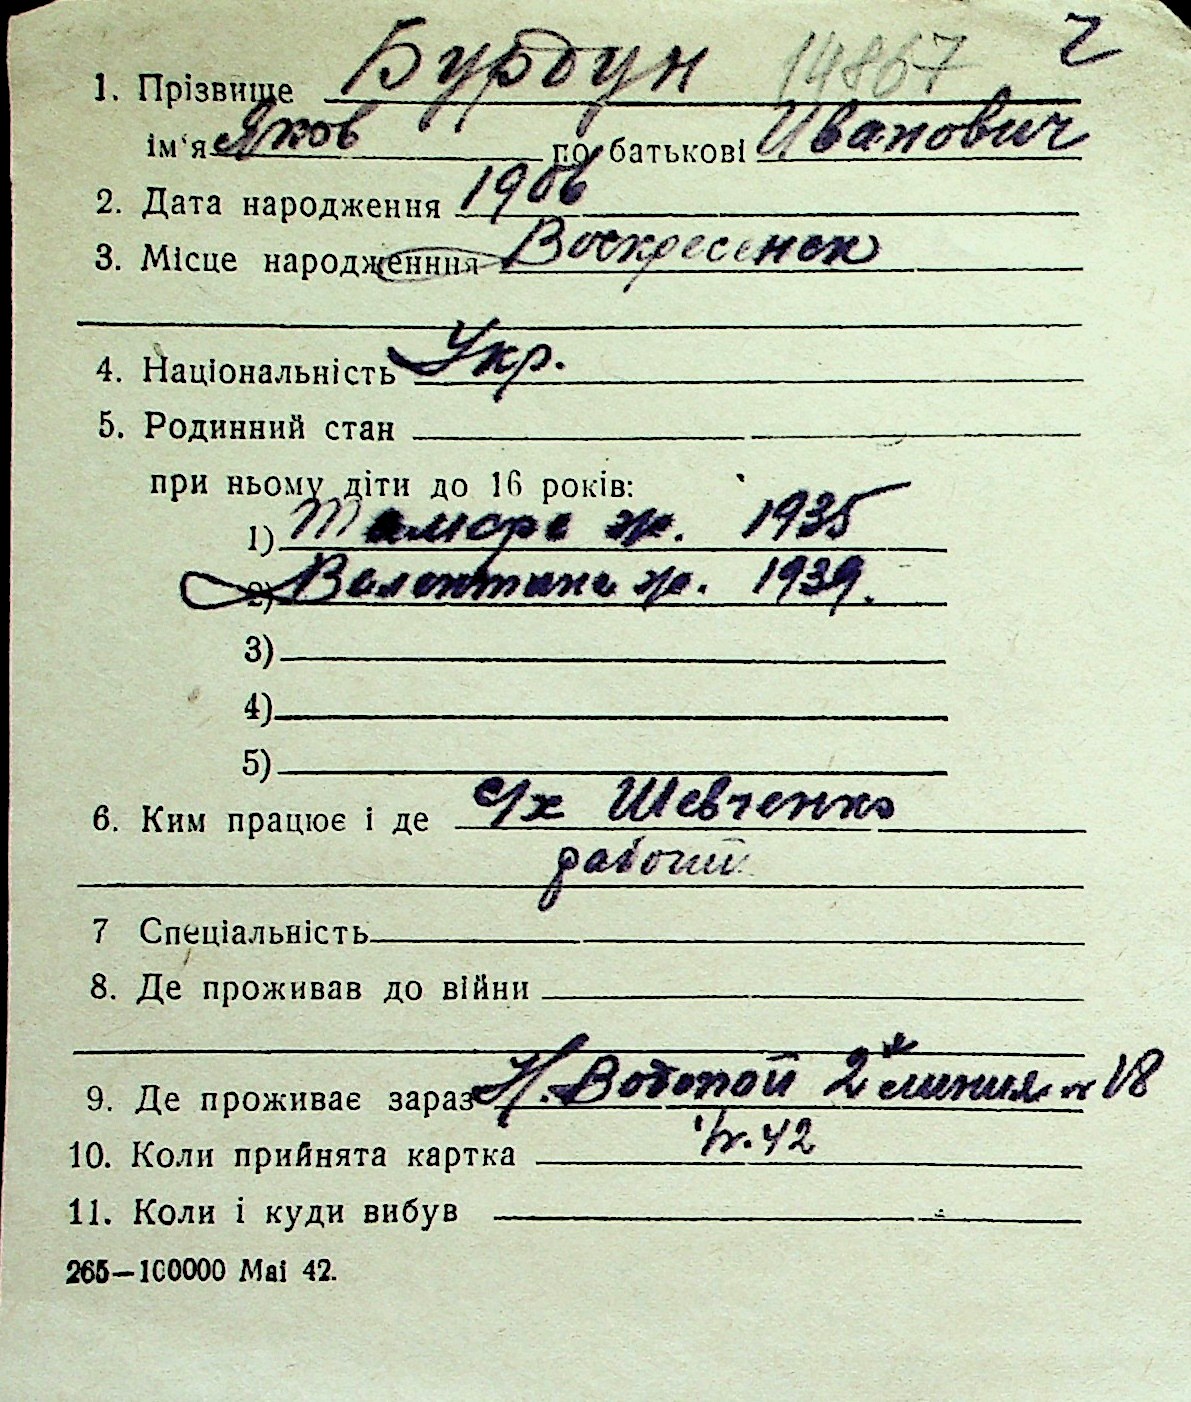 1. Прізвище Бурдун 14867 2
ім'я Яков по батькові Иванович
2. Дата народження 1906
3. Місце народженння Воскресенск
4. Національність Укр.
5. Родинний стан
при ньому діти до 16 років:
1) Тамара ж. 1935
2) Валентина ж. 1939.
3)
4)
5)
6. Ким працює і де с/х Шевченко
рабочий
7 Спеціальність
8. Де проживав до війни
9. Де проживає зараз Н. Водопой 2 линия № 18
10. Коли прийнята картка 42
11. Коли і куди вибув
265—100000 Mai 42.